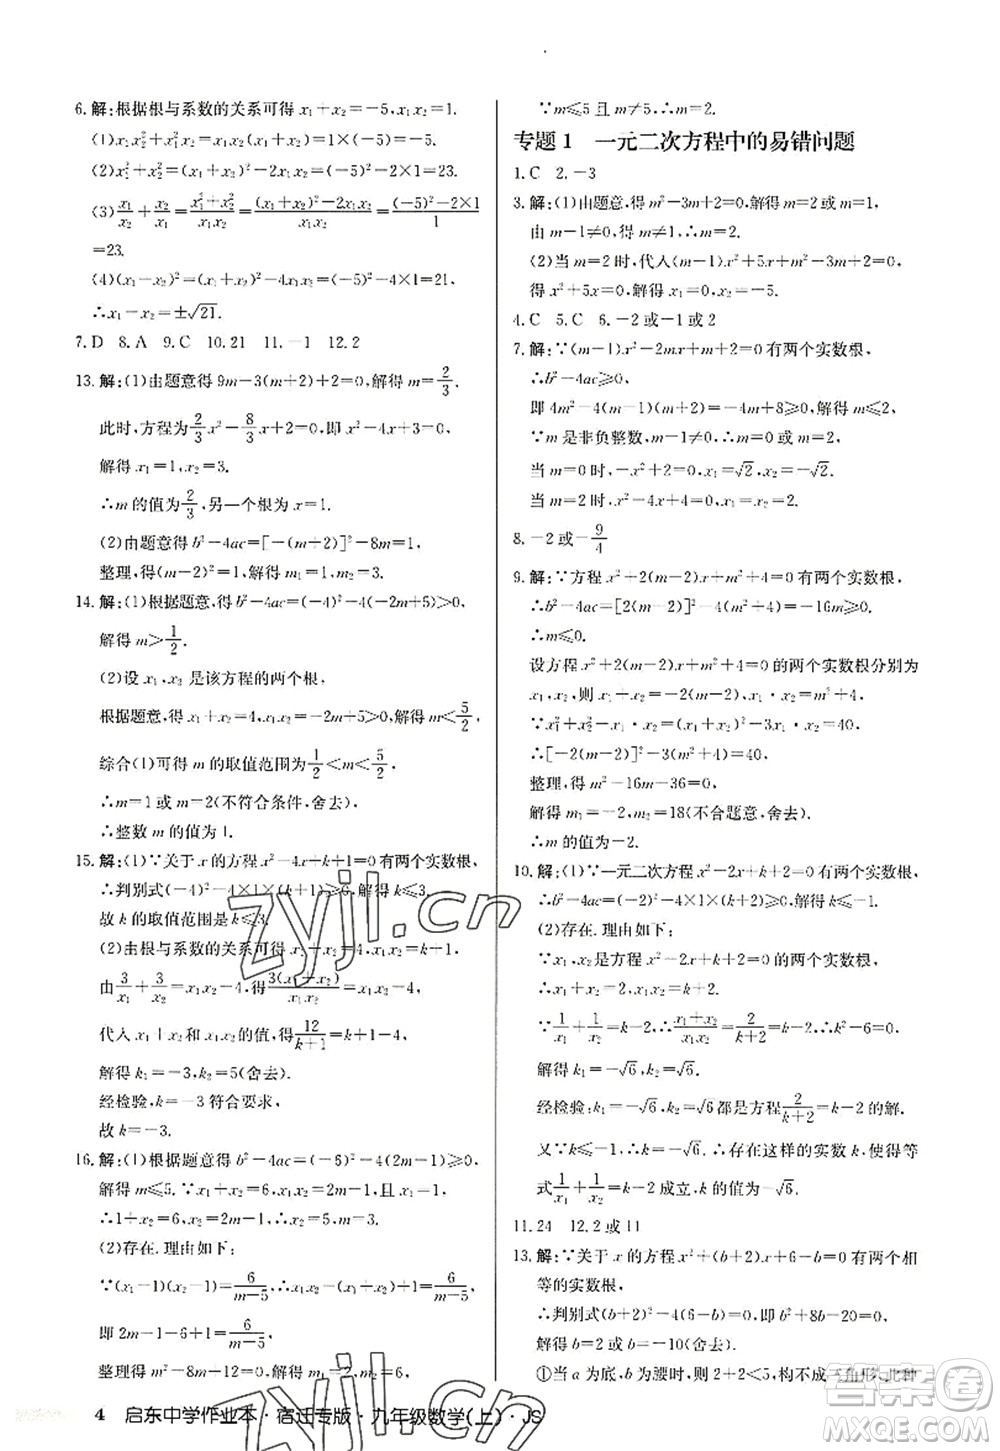 6.解:根据根与系数的关系可得 x₁+x₂=-5,x₁x₂=1.
(1)x₁x₂²+x₁²x₂=x₁x₂(x₁+x₂)=1×(-5)=-5.
(2)x₁²+x₂²=(x₁+x₂)²-2x₁x₂=(-5)²-2×1=23.
(3)x₁/x₂+x₂/x₁=(x₁²+x₂²)/(x₁x₂)=((x₁+x₂)²-2x₁x₂)/(x₁x₂)=((-5)²-2×1)/1
=23.
(4)(x₁-x₂)²=(x₁+x₂)²-4x₁x₂=(-5)²-4×1=21,
∴x₁-x₂=±√21.
7.D 8.A 9.C 10.21 11.-1 12.2
13.解:(1)由题意得 9m-3(m+2)+2=0,解得 m=2/3.
此时,方程为2/3x²-8/3x+2=0,即 x²-4x+3=0,
解得 x₁=1,x₂=3.
∴m 的值为2/3,另一个根为1.
(2)由题意得 b²-4ac=[-(m+2)]²-8m=1.
整理,得(m-2)²=1.解得 m₁=1,m₂=3.
14.解:(1)根据题意,得 b²-4ac=(-4)²-4(-2m+5)>0,
解得 m>1/2.
(2)设 x₁,x₂ 是该方程的两个根,
根据题意,得 x₁+x₂=4,x₁x₂=-2m+5>0,解得 m<5/2.
综合(1)可得 m 的取值范围为1/2<m<5/2.
∴m=1或 m=2(不符合条件,舍去).
∴整数 m 的值为 1.
15.解:(1)∵关于 x 的方程 x²-4x+k+1=0有两个实数根,
∴判别式(-4)²-4×1×(k+1)≥0,解得 k≤3.
故 k 的取值范围是 k≤3.
(2)由根与系数的关系可得 x₁+x₂=4,x₁x₂=k+1.
由3/x₁+3/x₂=x₁x₂-4,得3(x₁+x₂)/(x₁x₂)=x₁x₂-4,
代入 x₁+x₂ 和 x₁x₂ 的值,得12/(k+1)=k+1-4.
解得 k₁=-3,k₂=5(舍去).
经检验,k=-3符合要求,
故 k=-3.
16.解:(1)根据题意得 b²-4ac=(-6)²-4(2m-1)≥0,
解得 m≤5.∵x₁+x₂=6,x₁x₂=2m-1,x₁=1,
∴1+x₂=6,x₂=2m-1.∴x₂=5,m=3.
(2)存在.理由如下:
∵(x₁-1)(x₂-1)=6/(m-5),∴x₁x₂-(x₁+x₂)+1=6/(m-5),
即 2m-1-6+1=6/(m-5),
整理得 m²-8m+12=0,解得 m₁=2,m₂=6.
∵m≤5且 m≠5,∴m=2.
专题1 一元二次方程中的易错问题
1.C 2.-3
3.解:(1)由题意,得 m²-3m+2=0,解得 m=2或 m=1,
由 m-1≠0,得 m≠1.∴m=2.
(2)当 m=2时,代入(m-1)x²+5x+m²-3m+2=0,
得 x²+5x=0.解得 x₁=0,x₂=-5.
4.C 5.C 6.-2或-1或2
7.解:∵(m-1)x²-2mx+m-2=0有两个实数根,
∴b²-4ac≥0,
即 4m²-4(m-1)(m-2)≥0,
∵m 是非负整数,m-1≠0,∴m=0或 m=2.
当 m=0时,-x²-2=0,
当 m=2时,x²-4x=0.解得 x₁=0,x₂=4.
8.-2或-9/4
9.解:∵方程 x²+2(m-2)x+m²+4=0有两个实数根,
∴b²-4ac=[2(m-2)]²-4(m²+4)=-16m≥0,
∴m≤0.
设方程 x²+2(m-2)x+m²+4=0的两个实数根分别为
x₁,x₂,则 x₁+x₂=-2(m-2),x₁·x₂=m²+4,
∵x₁²+x₂²-x₁x₂=(x₁+x₂)²-3x₁·x₂=40,
∴[-2(m-2)]²-3(m²+4)=40.
整理,得 m²-16m-36=0,
解得 m₁=-2,m₂=18(不合题意,舍去).
∴m 的值为-2.
10.解:(1)∵一元二次方程 x²-2x+k+2=0有两个实数根,
∴b²-4ac=(-2)²-4×1×(k+2)≥0,解得 k≤-1.
(2)存在.理由如下:
∵x₁,x₂ 是一元二次方程 x²-2x+k+2=0的两个实数根,
∴x₁+x₂=2,x₁x₂=k+2.
∵1/x₁+1/x₂=k-2,∴(x₁+x₂)/(x₁x₂)=2/(k+2)=k-2.∴k²-6=0.
解得 k₁=-√6,k₂=√6.
经检验,k₁=-√6,k₂=√6都是方程2/(k+2)=k-2的解.
又∵k≤-1,∴k=-√6.∴存在这样的实数 k,使得等
式1/x₁+1/x₂=k-2成立,k 的值为-√6.
11.24 12.2或11
13.解:∵关于 x 的方程 x²+(b+2)x+6-b=0有两个相
等的实数根,
∴判别式(b+2)²-4(6-b)=0,即 b²+8b-20=0,
解得 b=2或 b=-10(舍去).
①当 a 为底,b 为腰时,则2+2<5,构不成三角形,此种
4 启东中学作业本·宿迁专版·九年级数学(上)·JS
zyjl.cn
答案圈